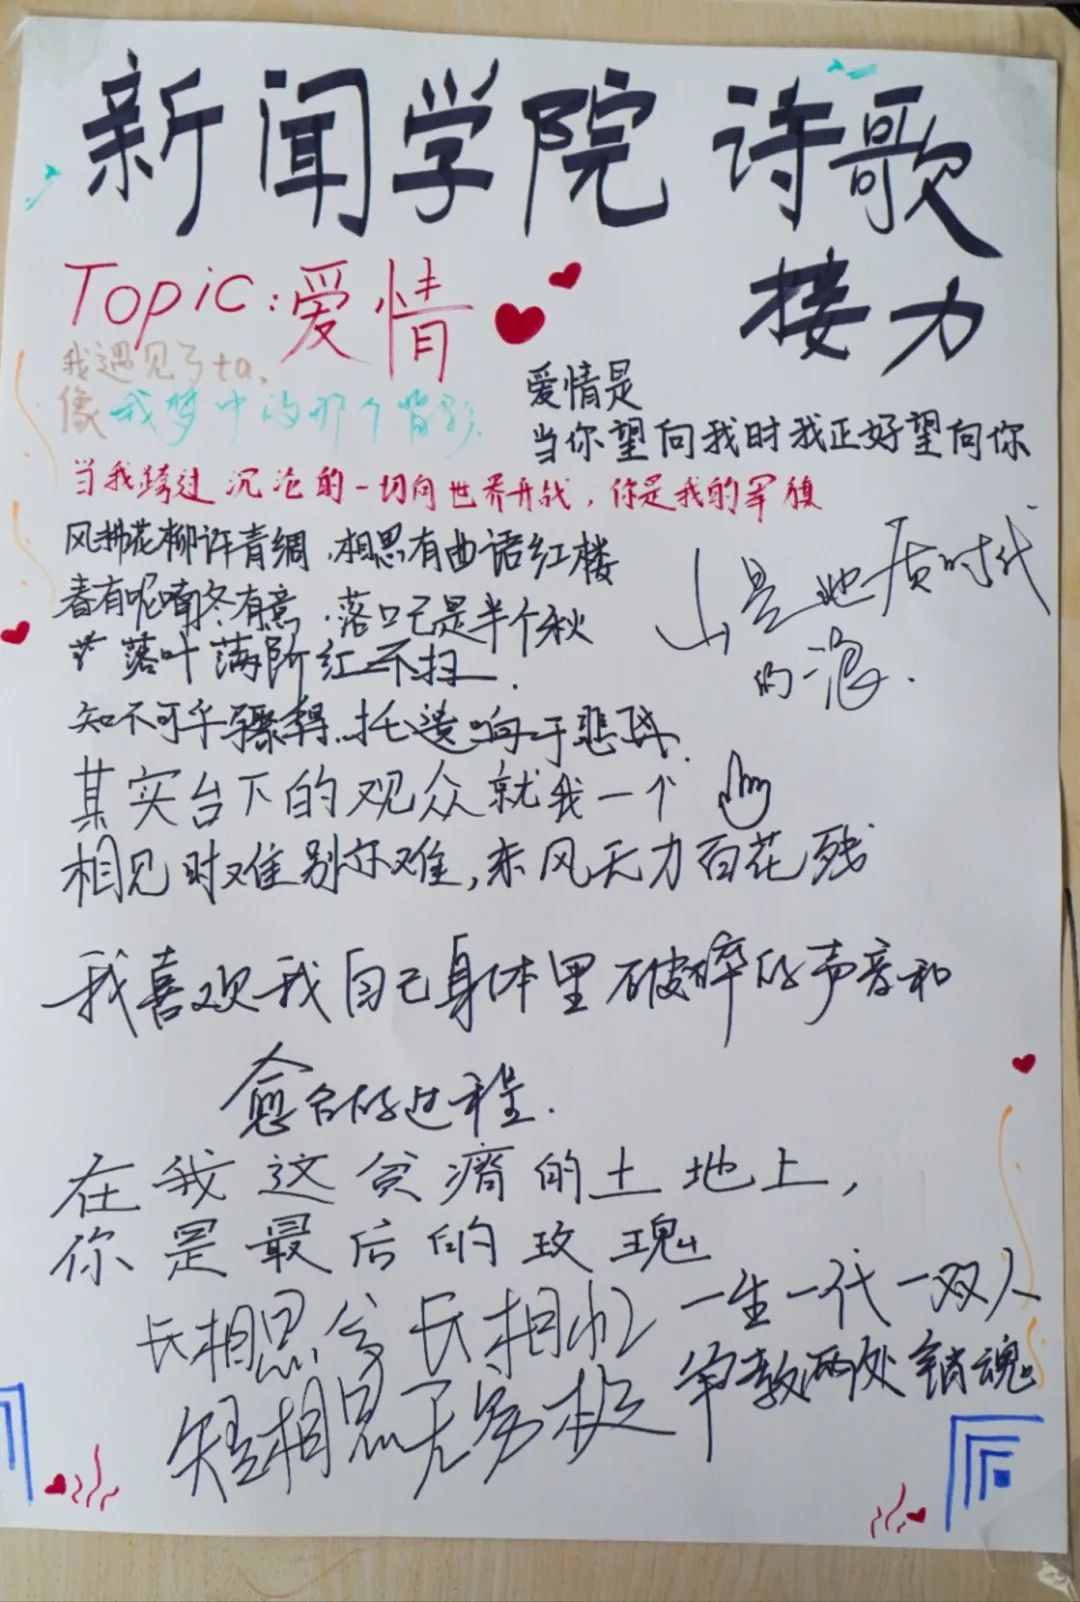 新闻学院 诗歌
接力
Topic:爱情
我遇见了ta,
像我梦中的那个背影.
爱情是
当你望向我时我正好望向你
当我跨过沉沦的一切向世界开战,你是我的军旗
风拂花柳许青绸,相思有曲诺红楼
春有呢喃冬有意,落口已是半个秋
落叶满阶红不扫.
山是地质时代
的浪.
知不可乎骤得,托遗响于悲风.
其实台下的观众就我一个
相见时难别亦难,东风无力百花残
我喜欢我自己身体里破碎的声音和
愈合的过程.
在我这贫瘠的土地上,
你是最后的玫瑰
长相思兮长相忆
短相思无穷极
一生一代一双人
争教两处销魂